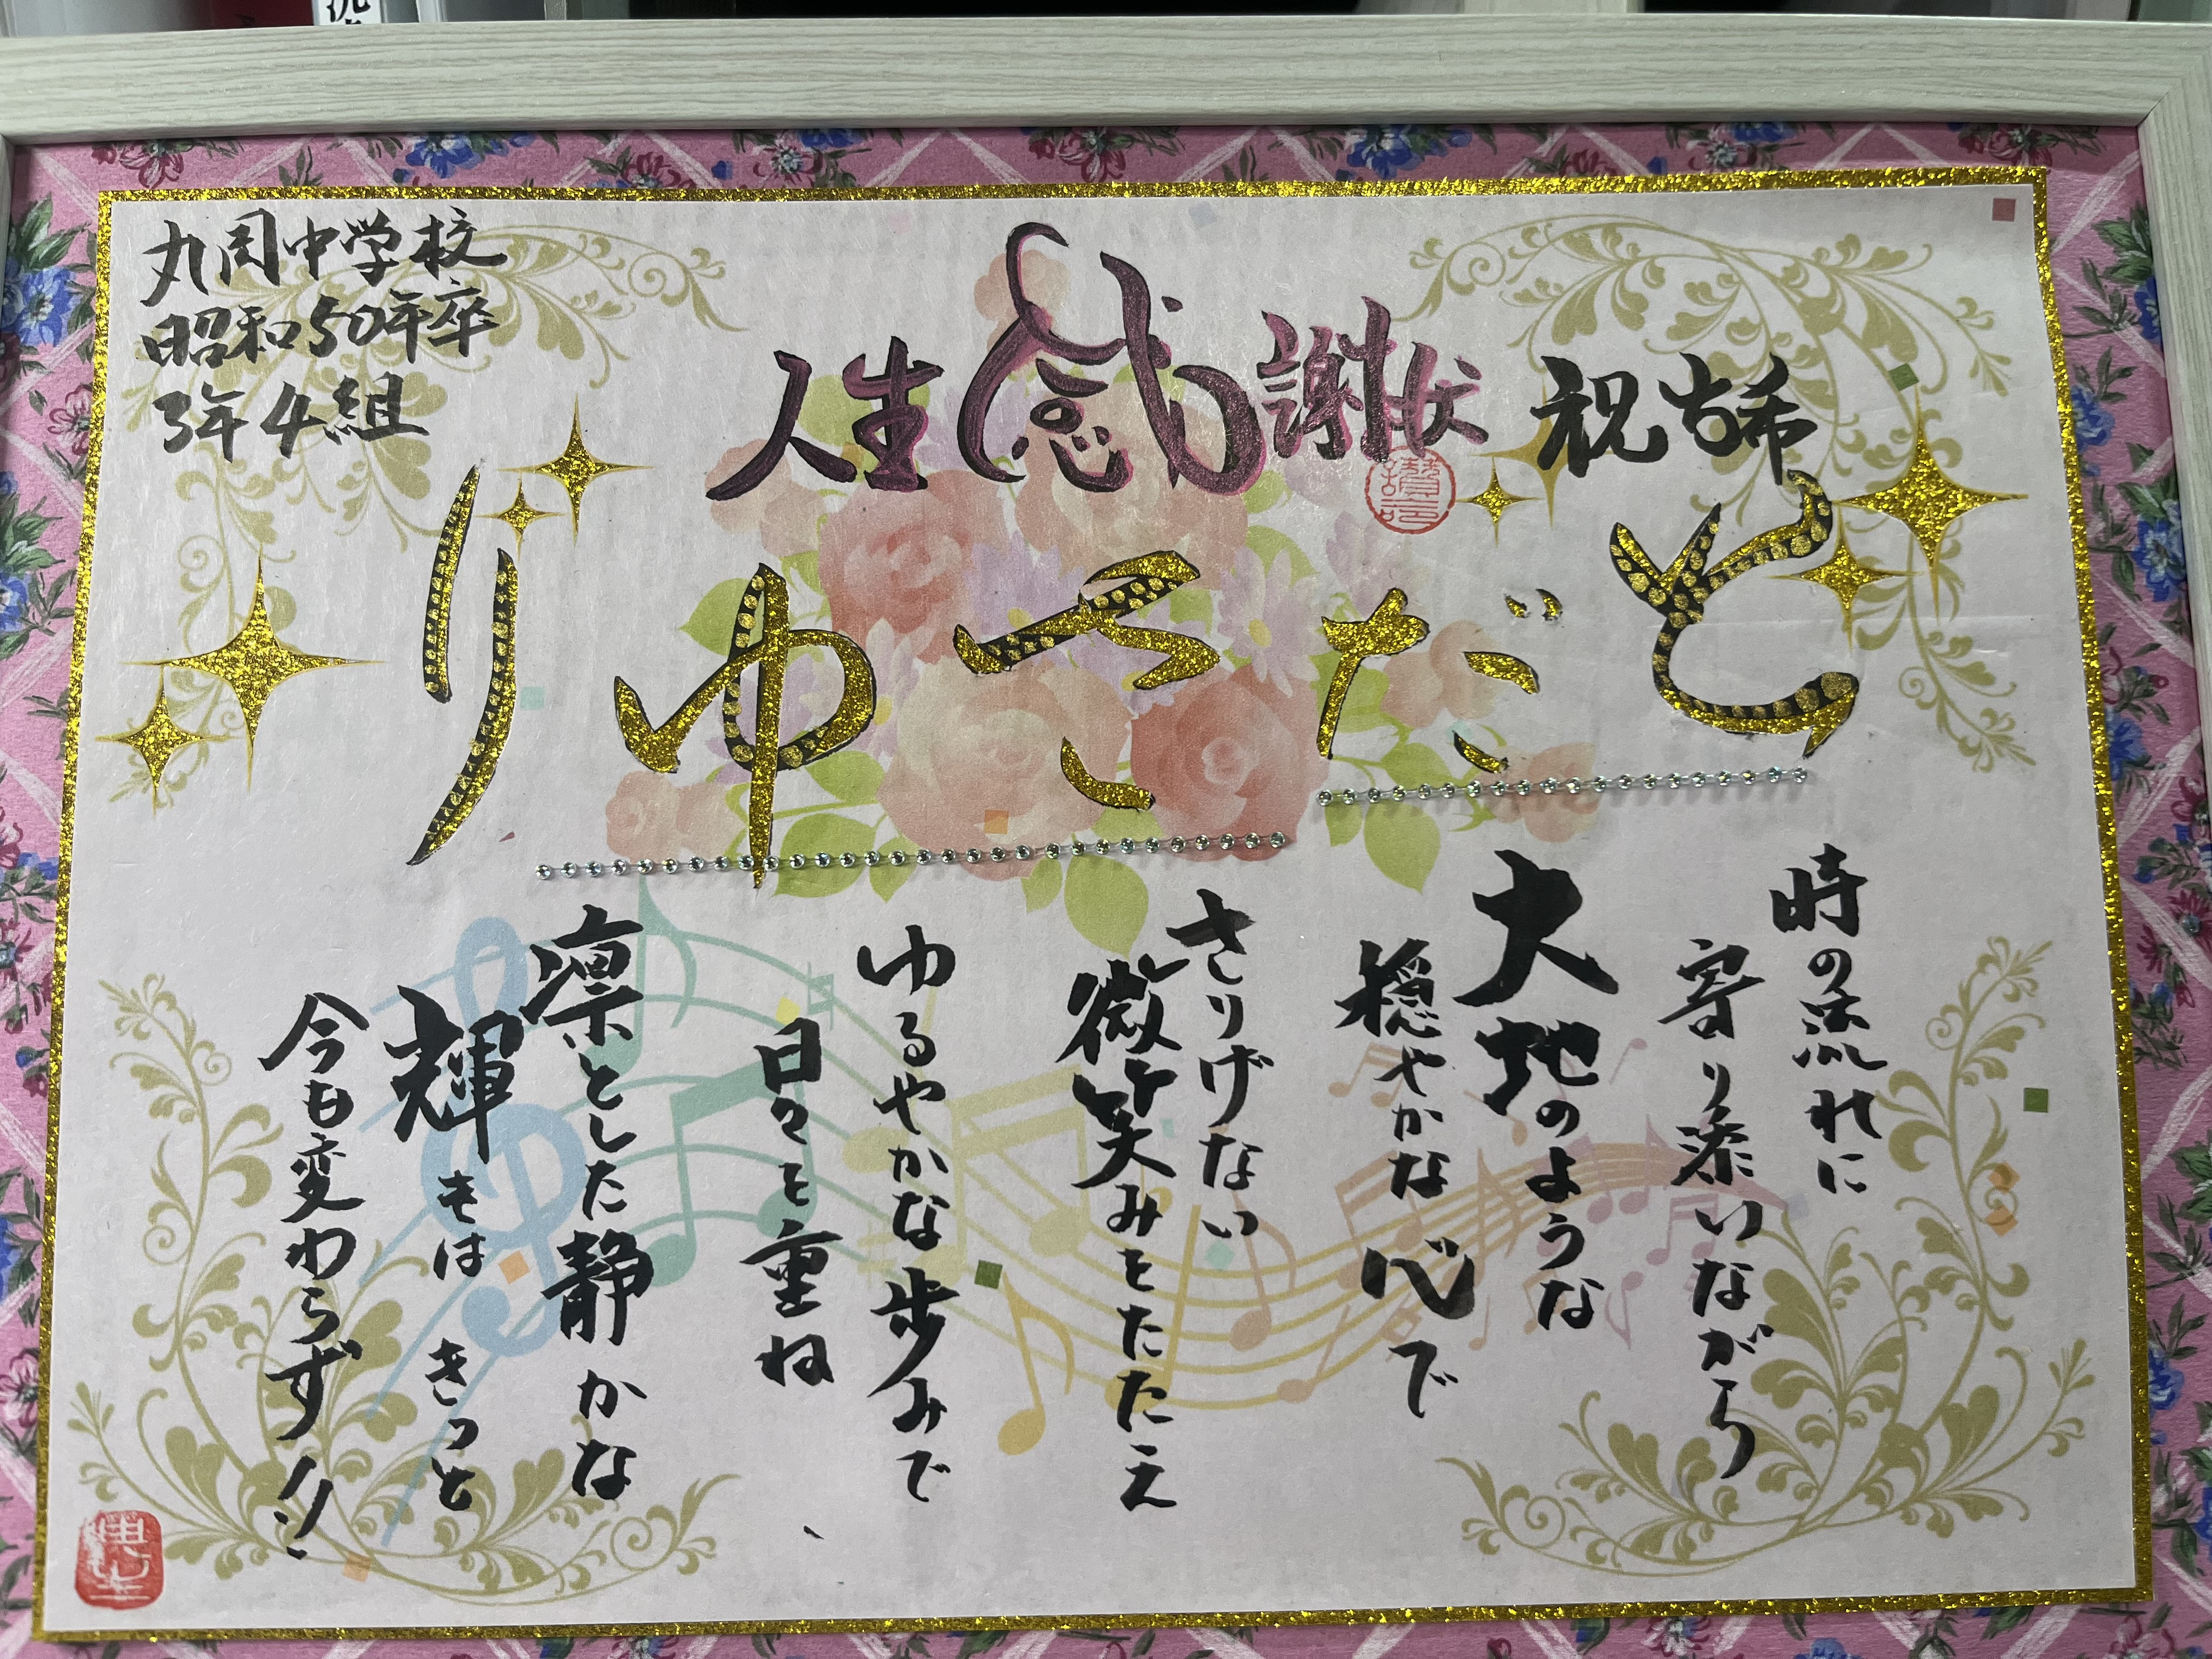 丸岡中学校
昭和50年卒
3年4組
人生感謝状 祝古希
とださゆり
時の流れに
寄り添いながら
大地のような
穏やかな心で
さりげない
微笑みをたたえ
ゆるやかな歩みで
日々を重ね、
凛とした静かな
輝きは きっと
今も変わらず!!